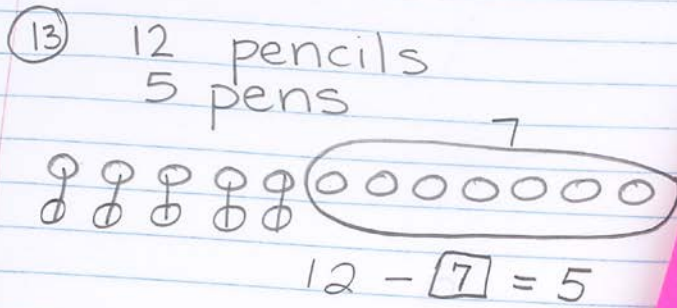 13 12 pencils
5 pens
7
12 - 7 = 5